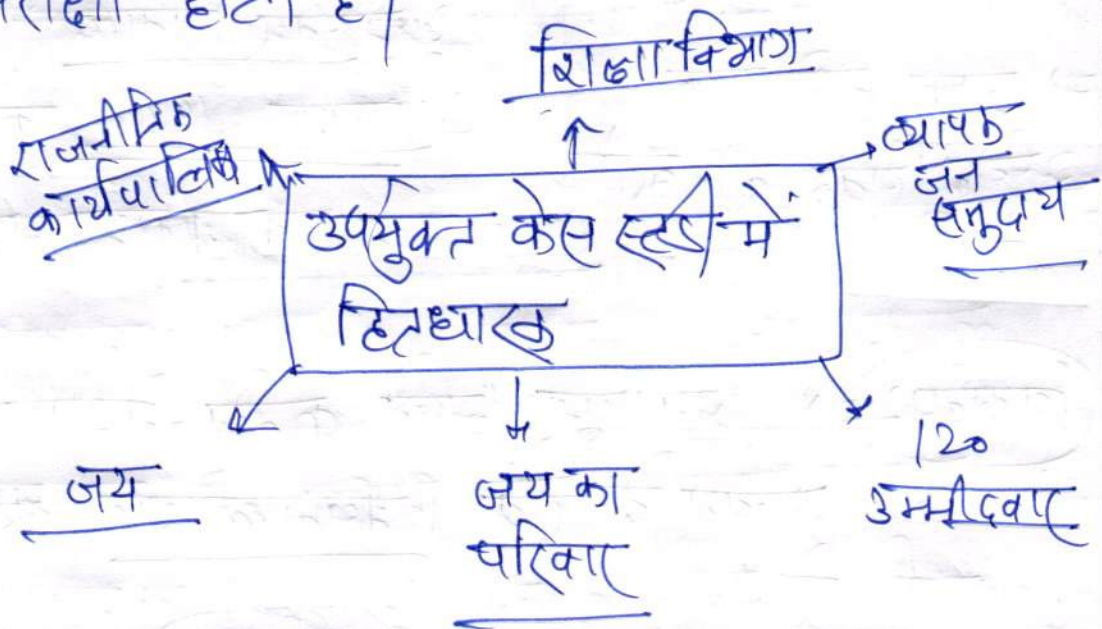 होता है।
शिक्षा विभाग
राजनीतिक
कार्यपालिका
व्यापक
जन
समुदाय
उपर्युक्त केस स्टडी में
हितधारक
जय
जय का
परिवार
120
उम्मीदवार